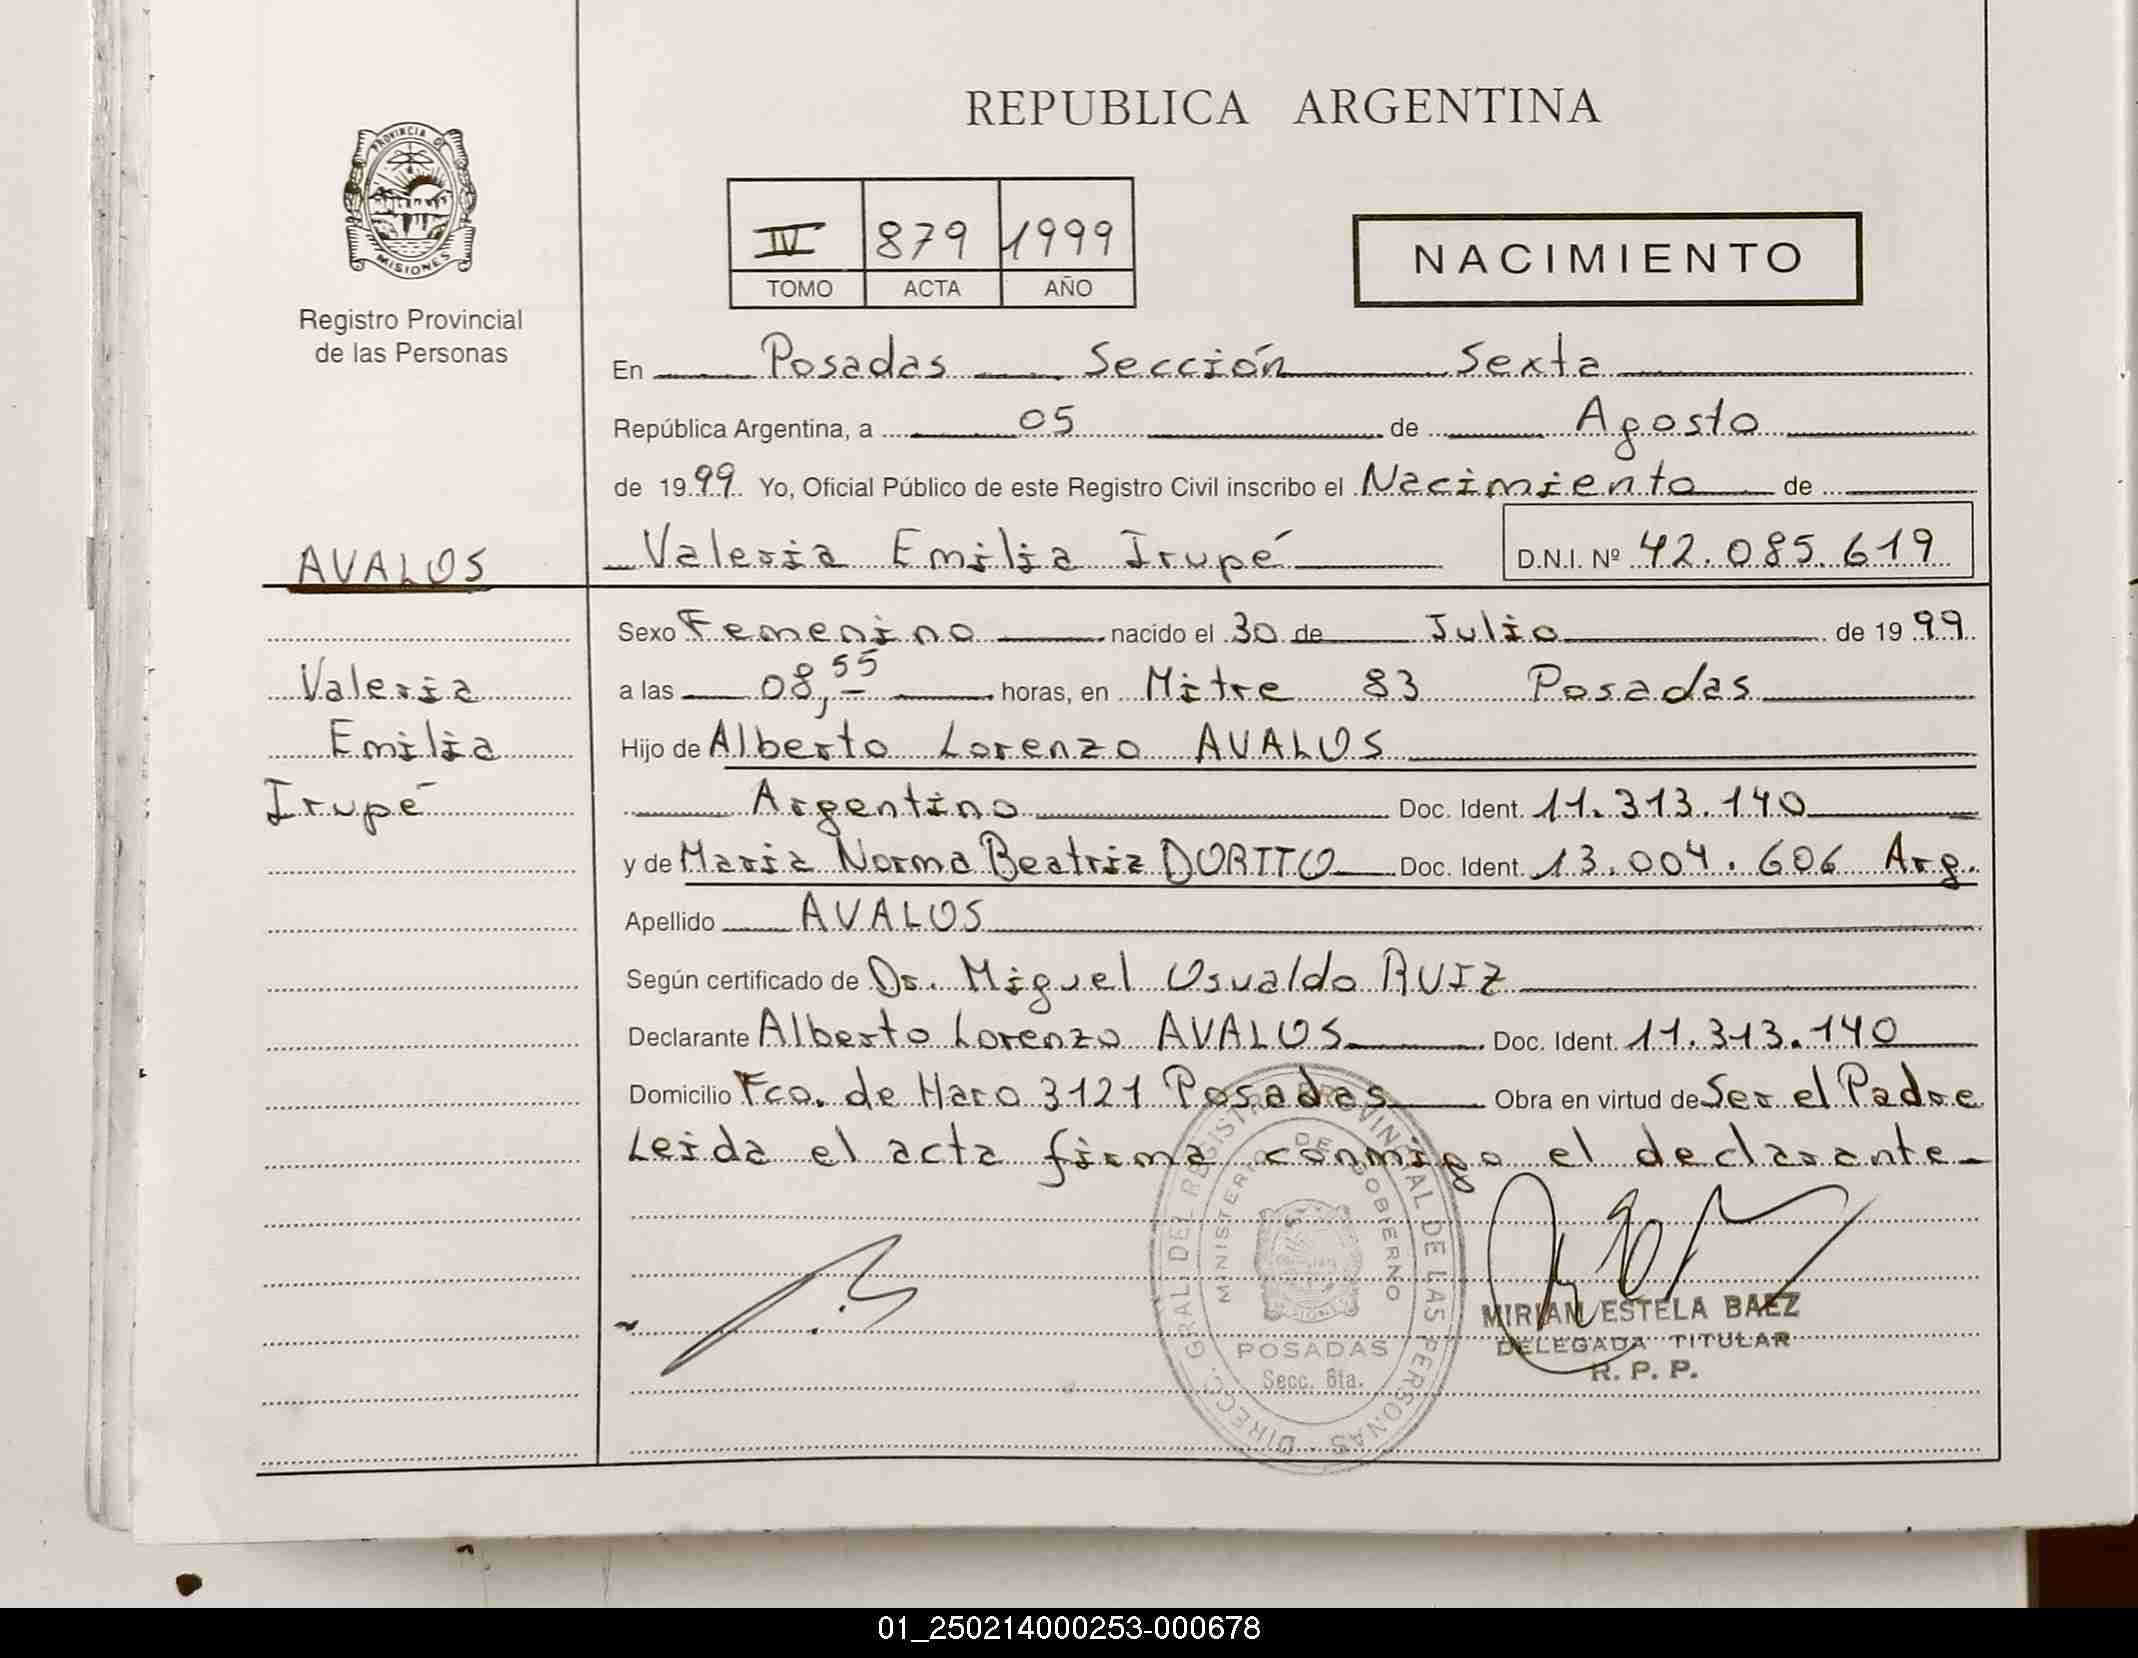 REPUBLICA ARGENTINA
PROVINCIA DE
MISIONES
Registro Provincial
de las Personas
IV 879 1999
TOMO ACTA AÑO
NACIMIENTO
En Posadas Sección Sexta
República Argentina, a 05 de Agosto
de 1999 Yo, Oficial Público de este Registro Civil inscribo el Nacimiento de
Valeria Emilia Irupé D.N.I. Nº 42.085.619
AVALOS
Valeria
Emilia
Irupé
Sexo Femenino nacido el 30 de Julio de 1999
a las 08,55 horas, en Mitre 83 Posadas
Hijo de Alberto Lorenzo AVALOS
Argentino Doc. Ident. 11.313.140
y de Maria Norma Beatriz DORTTO Doc. Ident. 13.004.606 Arg.
Apellido AVALOS
Según certificado de Dr. Miguel Osvaldo RUIZ
Declarante Alberto Lorenzo AVALOS Doc. Ident. 11.313.140
Domicilio Fco. de Haro 3121 Posadas Obra en virtud de Ser el Padre
Leida el acta firma conmigo el declarante
DIRECC. GRAL. DEL REGISTRO PROVINCIAL DE LAS PERSONAS
MINISTERIO DE GOBIERNO
POSADAS
Secc. 6ta.
MIRIAN ESTELA BAEZ
DELEGADA TITULAR
R. P. P.
01_250214000253-000678